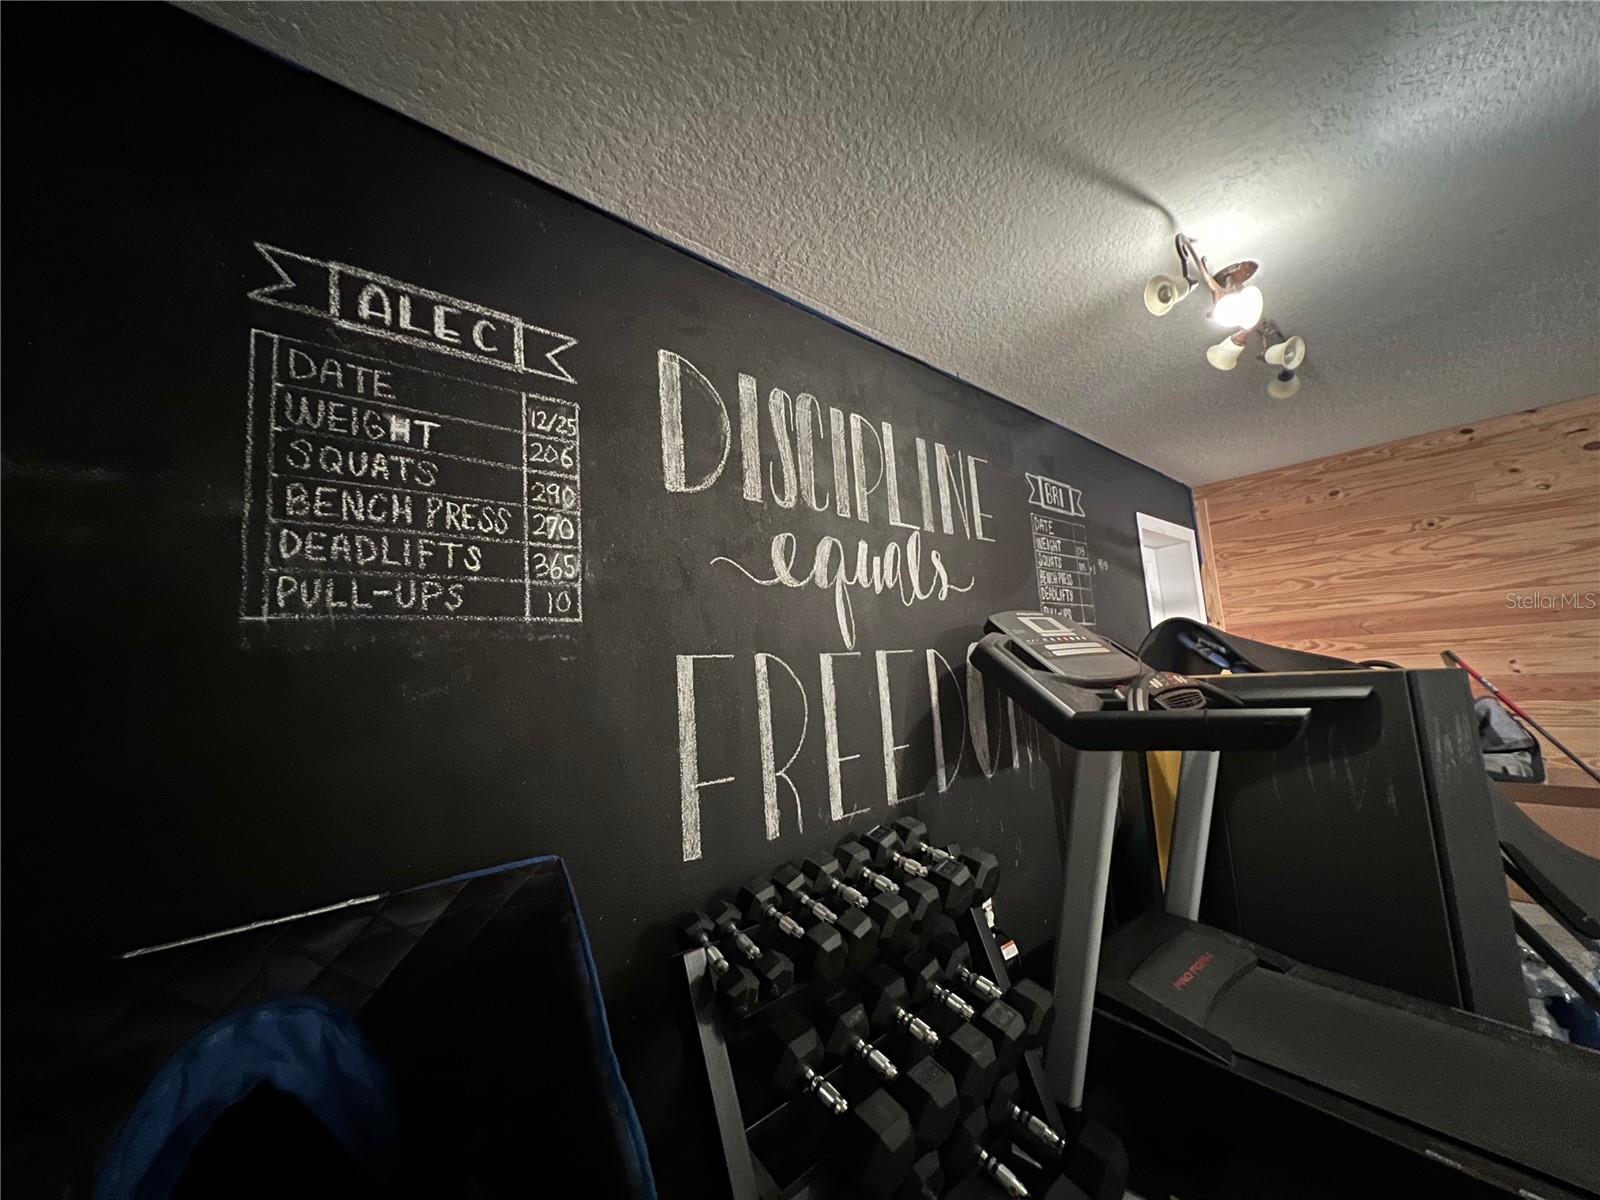 ALEC
DATE 12/25
WEIGHT 206
SQUATS 290
BENCH PRESS 270
DEADLIFTS 365
PULL-UPS 10
DISCIPLINE
equals
FREEDOM
BRI
DATE
WEIGHT
SQUATS
BENCH PRESS
DEADLIFTS
PULL-UPS
PRO-FORM
StellarMLS